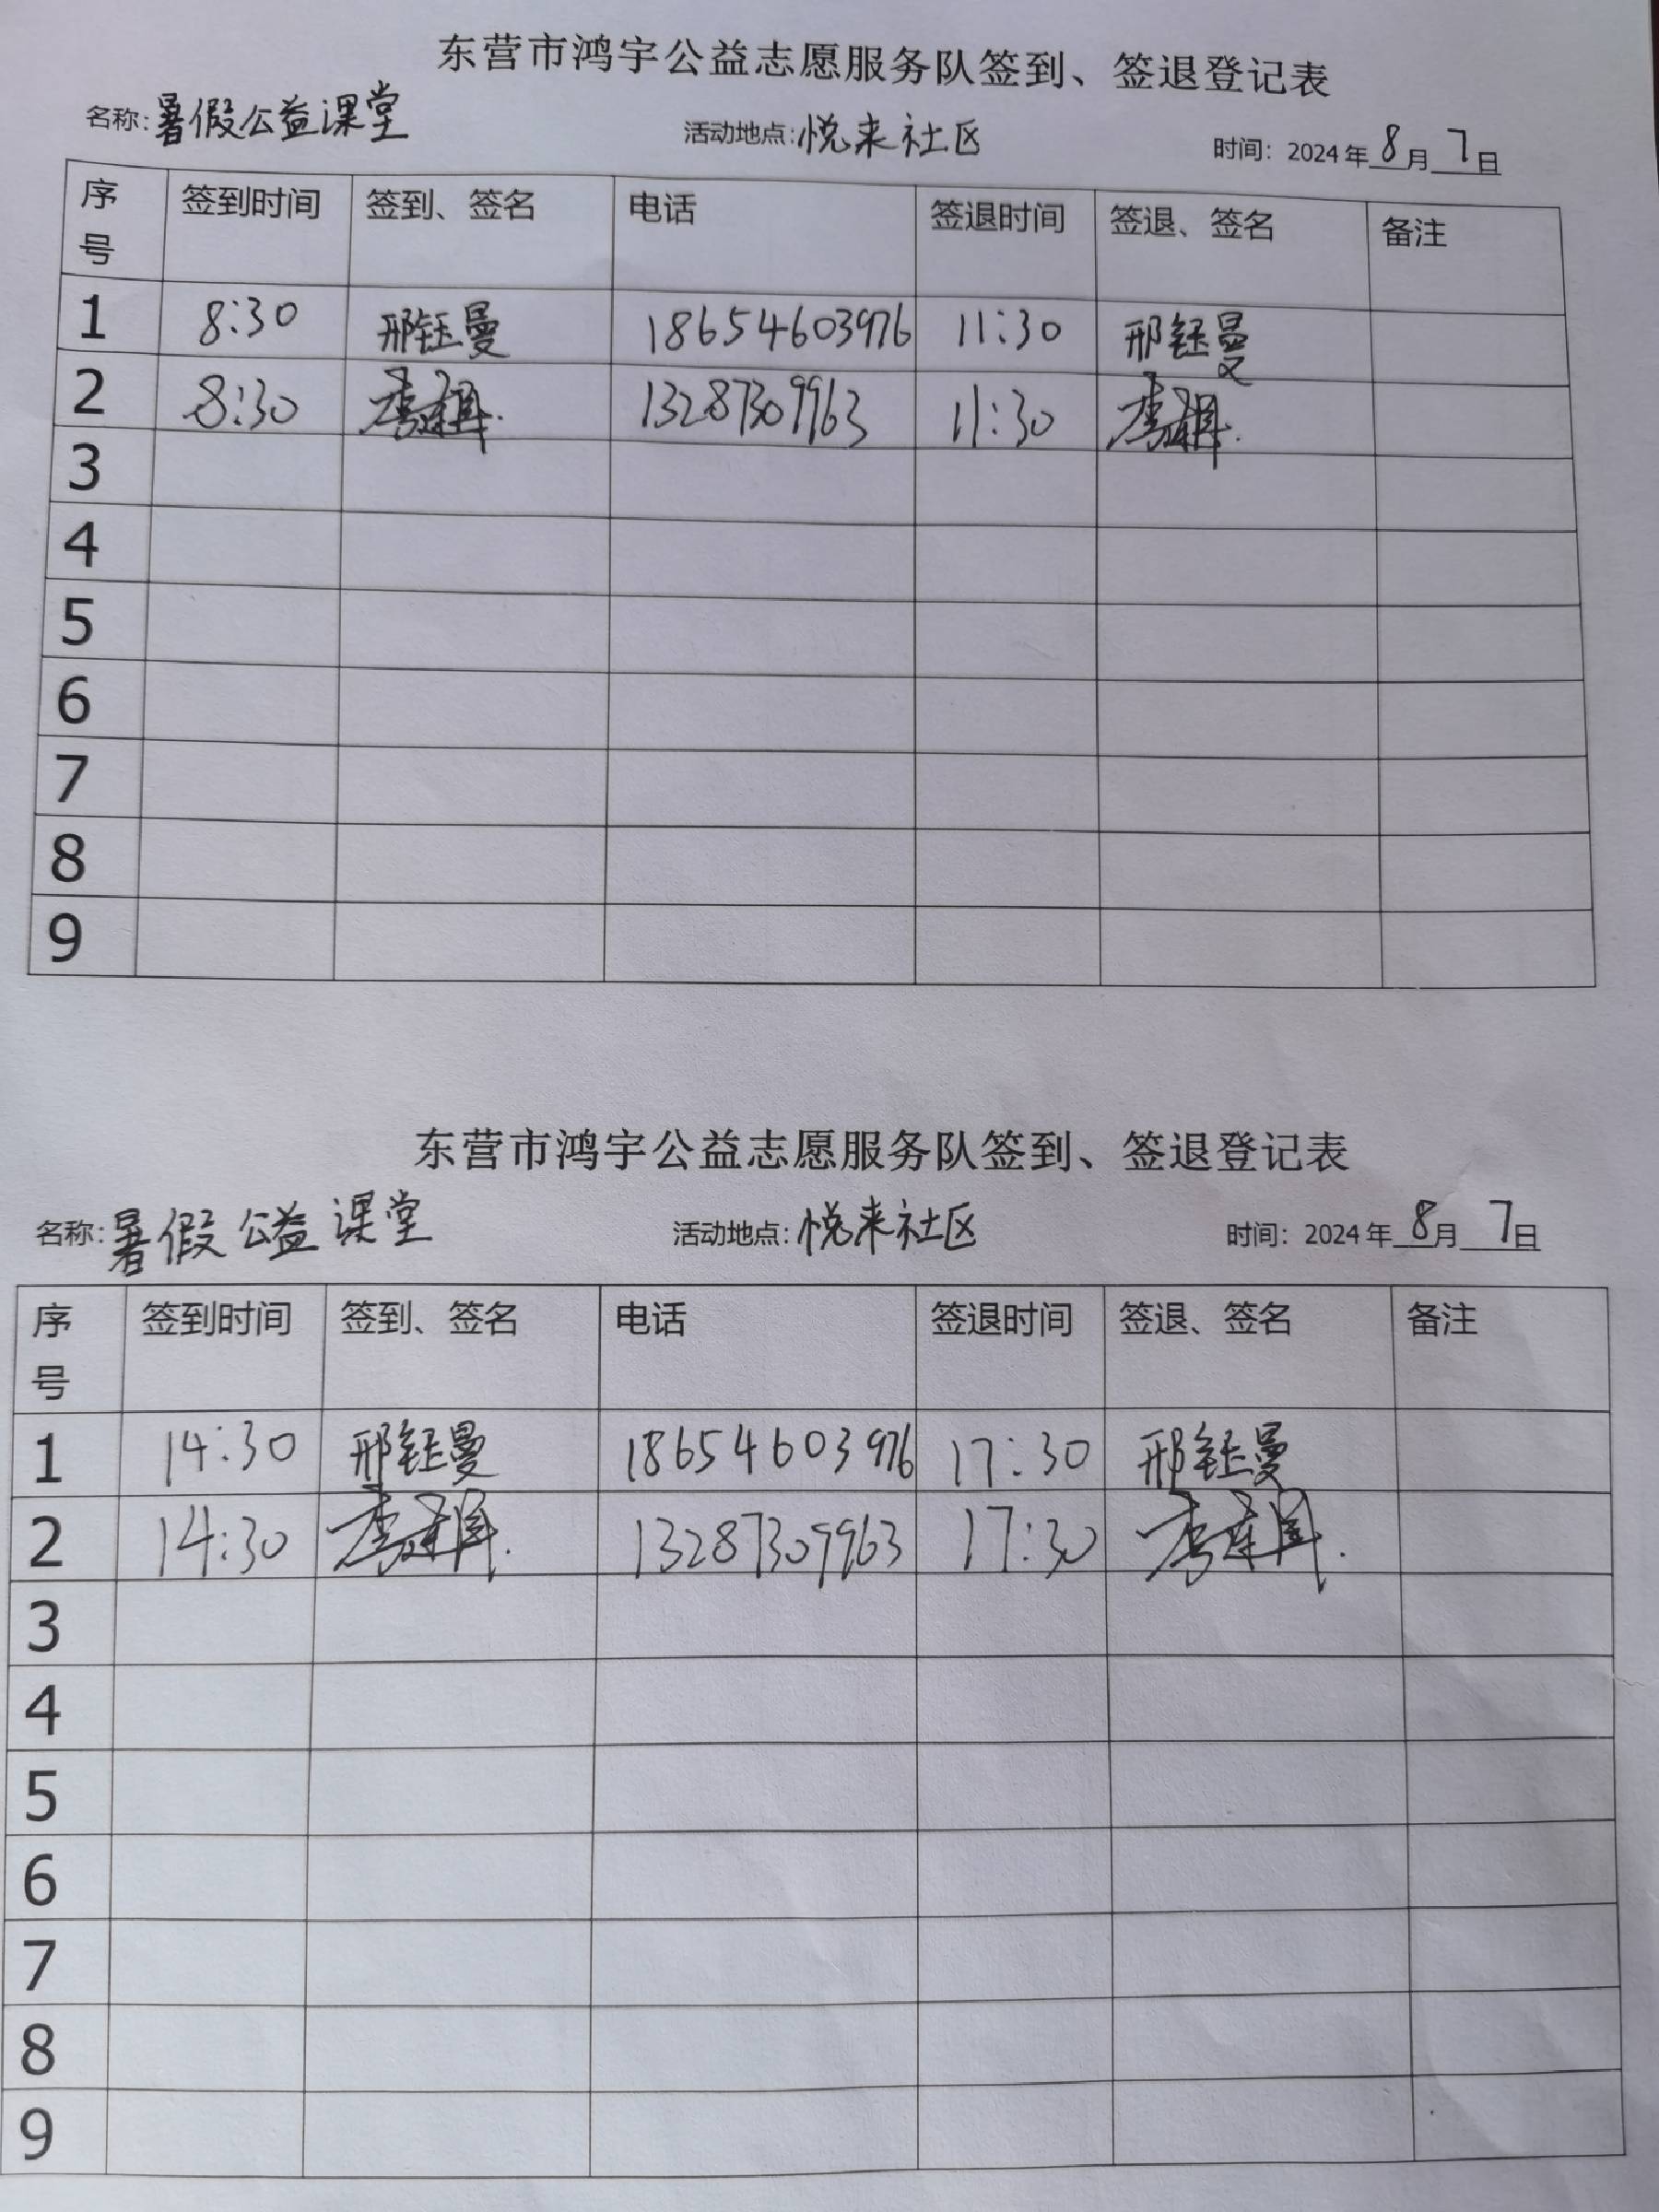 东营市鸿宇公益志愿服务队签到、签退登记表
名称：暑假公益课堂 活动地点：悦来社区 时间：2024年8月7日
序号 签到时间 签到、签名 电话 签退时间 签退、签名 备注
1 8:30 邢钰曼 18654603976 11:30 邢钰曼
2 8:30 李 13287309963 11:30 李
3
4
5
6
7
8
9
东营市鸿宇公益志愿服务队签到、签退登记表
名称：暑假公益课堂 活动地点：悦来社区 时间：2024年8月7日
序号 签到时间 签到、签名 电话 签退时间 签退、签名 备注
1 14:30 邢钰曼 18654603976 17:30 邢钰曼
2 14:30 李 13287309963 17:30 李
3
4
5
6
7
8
9